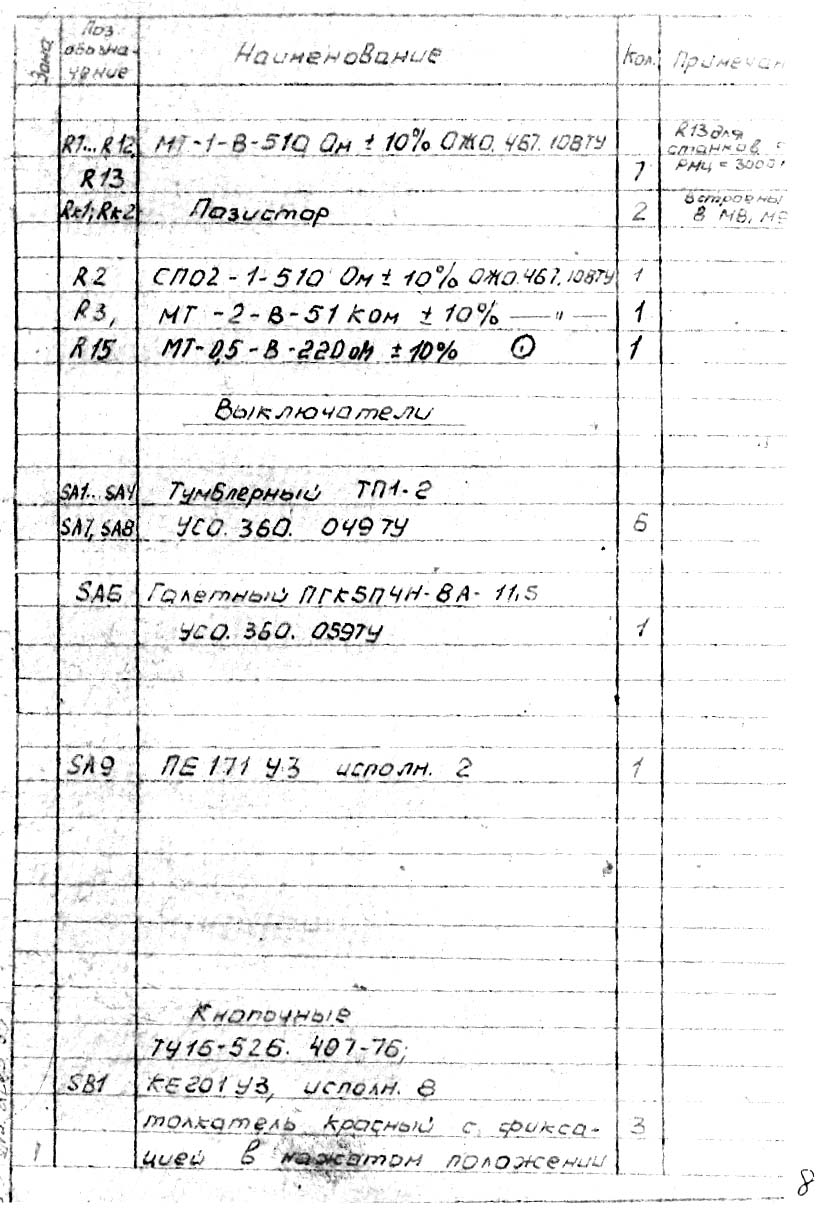 Зона Поз. обозна- чение Наименование Кол. Примечан
R1...R12, МТ-1-В-510 Ом ± 10% ОЖО.467.108ТУ R13 для
станков с
R13 7 РМЦ = 3000
Rк1; Rк2 Позистор 2 Встроены
в МВ, М
R2 СПО2-1-510 Ом ± 10% ОЖО.467.108ТУ 1
R3, МТ -2-В-51 ком ± 10% —— " —— 1
R15 МТ-0,5-В-220 ом ± 10% 1
Выключатели
SA1...SA4 Тумблерный ТП1-2
SA7, SA8 УСО. 360. 049 ТУ 6
SA6 Галетный ПГК5П4Н-8А- 11,5
УСО. 360. 059ТУ 1
SA9 ПЕ 171 У3 исполн. 2 1
Кнопочные
ТУ16-526. 407-76;
SB1 КЕ201 У3, исполн. 8
толкатель красный с фикса- 3
цией в нажатом положении
8